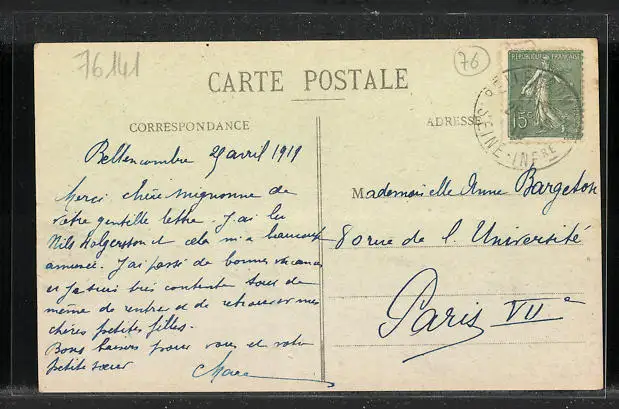 76141
76
CARTE POSTALE
REPUBLIQUE FRANÇAISE
15c
SEINE-INFRE
CORRESPONDANCE
ADRESSE
Bellencombre 29 avril 1919
Merci chère mignonne de
votre gentille lettre. J'ai lu
Nils Holgersson et cela m'a beaucoup
amusée. J'ai passé de bonnes vacances
et je suis très contente tout de
même de rentrer et de retrouver mes
chères petites filles.
Bons baisers pour vous et votre
petite sœur
Mademoiselle Anne Bargeton
80 rue de l'Université
Paris VIIe